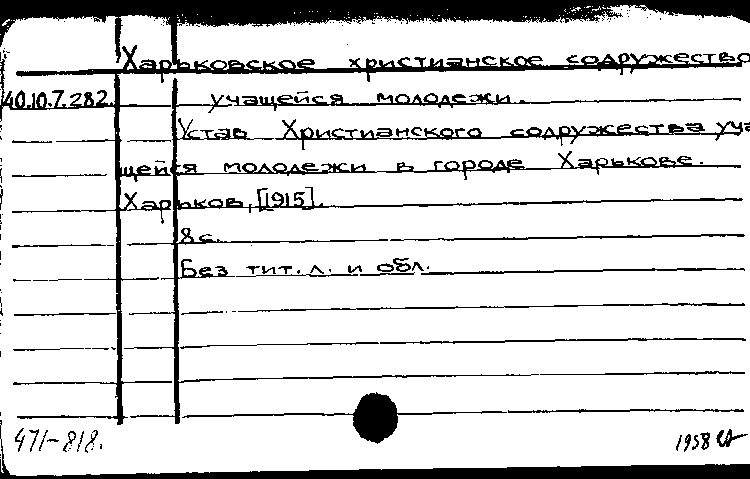 Харьковское христианское содружество
40.10.7.282. учащейся молодежи.
Устав Христианского содружества уча
щейся молодежи в городе Харькове.
Харьков, [1915].
8 с.
Без тит. л. и обл.
471-818.
1958